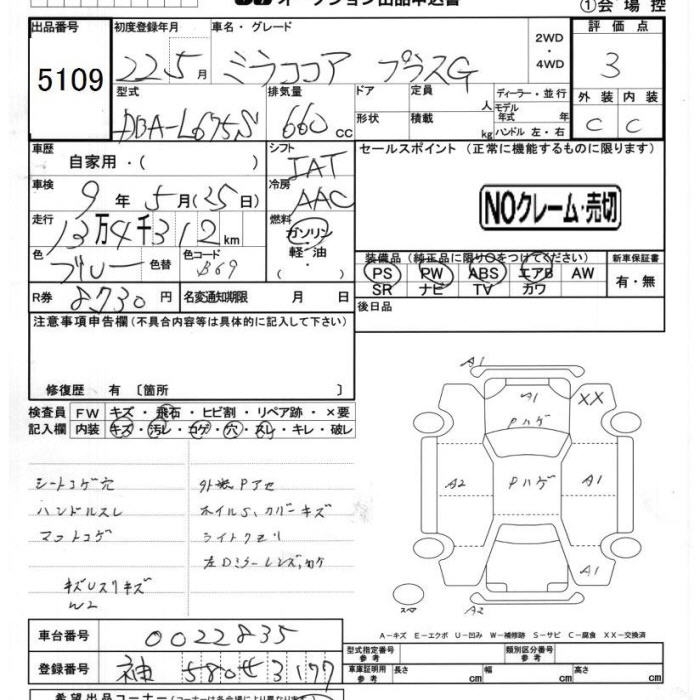 ①会場控
出品番号
5109
初度登録年月
22 5月
車名・グレード
ミラココア プラスG
2WD
・
4WD
評価点
3
外装 内装
C C
型式
DBA-L675S
排気量
660 cc
ドア
形状
定員
人
積載
kg
ディーラー・並行
モデル年式 年
ハンドル 左・右
車歴
自家用・( )
シフト
IAT
セールスポイント (正常に機能するものに限ります)
NOクレーム・売切
車検
9年5月(25日)
冷房
AAC
走行
13万4千312km
燃料
ガソリン
・
軽・油
色
ブルー
色替
色コード
B69
装備品(純正品に限り○をつけてください)
PS PW ABS エアB AW
SR ナビ TV カワ
新車保証書
有・無
R券 8730円
名変通知期限 月 日
後日品
注意事項申告欄(不具合内容等は具体的に記入して下さい)
修復歴 有 〔箇所 〕
検査員記入欄
FW キズ・飛石・ヒビ割・リペア跡・×要
内装 キズ・汚レ・コゲ・穴・スレ・キレ・破レ
シートコゲ穴
ハンドルスレ
マットコゲ
外装Pアセ
ホイルS、カバーキズ
ライトクモリ
キズUスリキズ
W2
A1
A1
Pハゲ
XX
A2
Pハゲ
A1
A1
A2
スマ
A-キズ E-エクボ U-凹み W-補修跡 S-サビ C-腐食 XX-交換済
車台番号 0022835
登録番号 580 せ 3177
型式指定番号
参考
類別区分番号
参考
車庫証明用
参考
長さ cm
幅 cm
高さ cm
希望出品コーナー